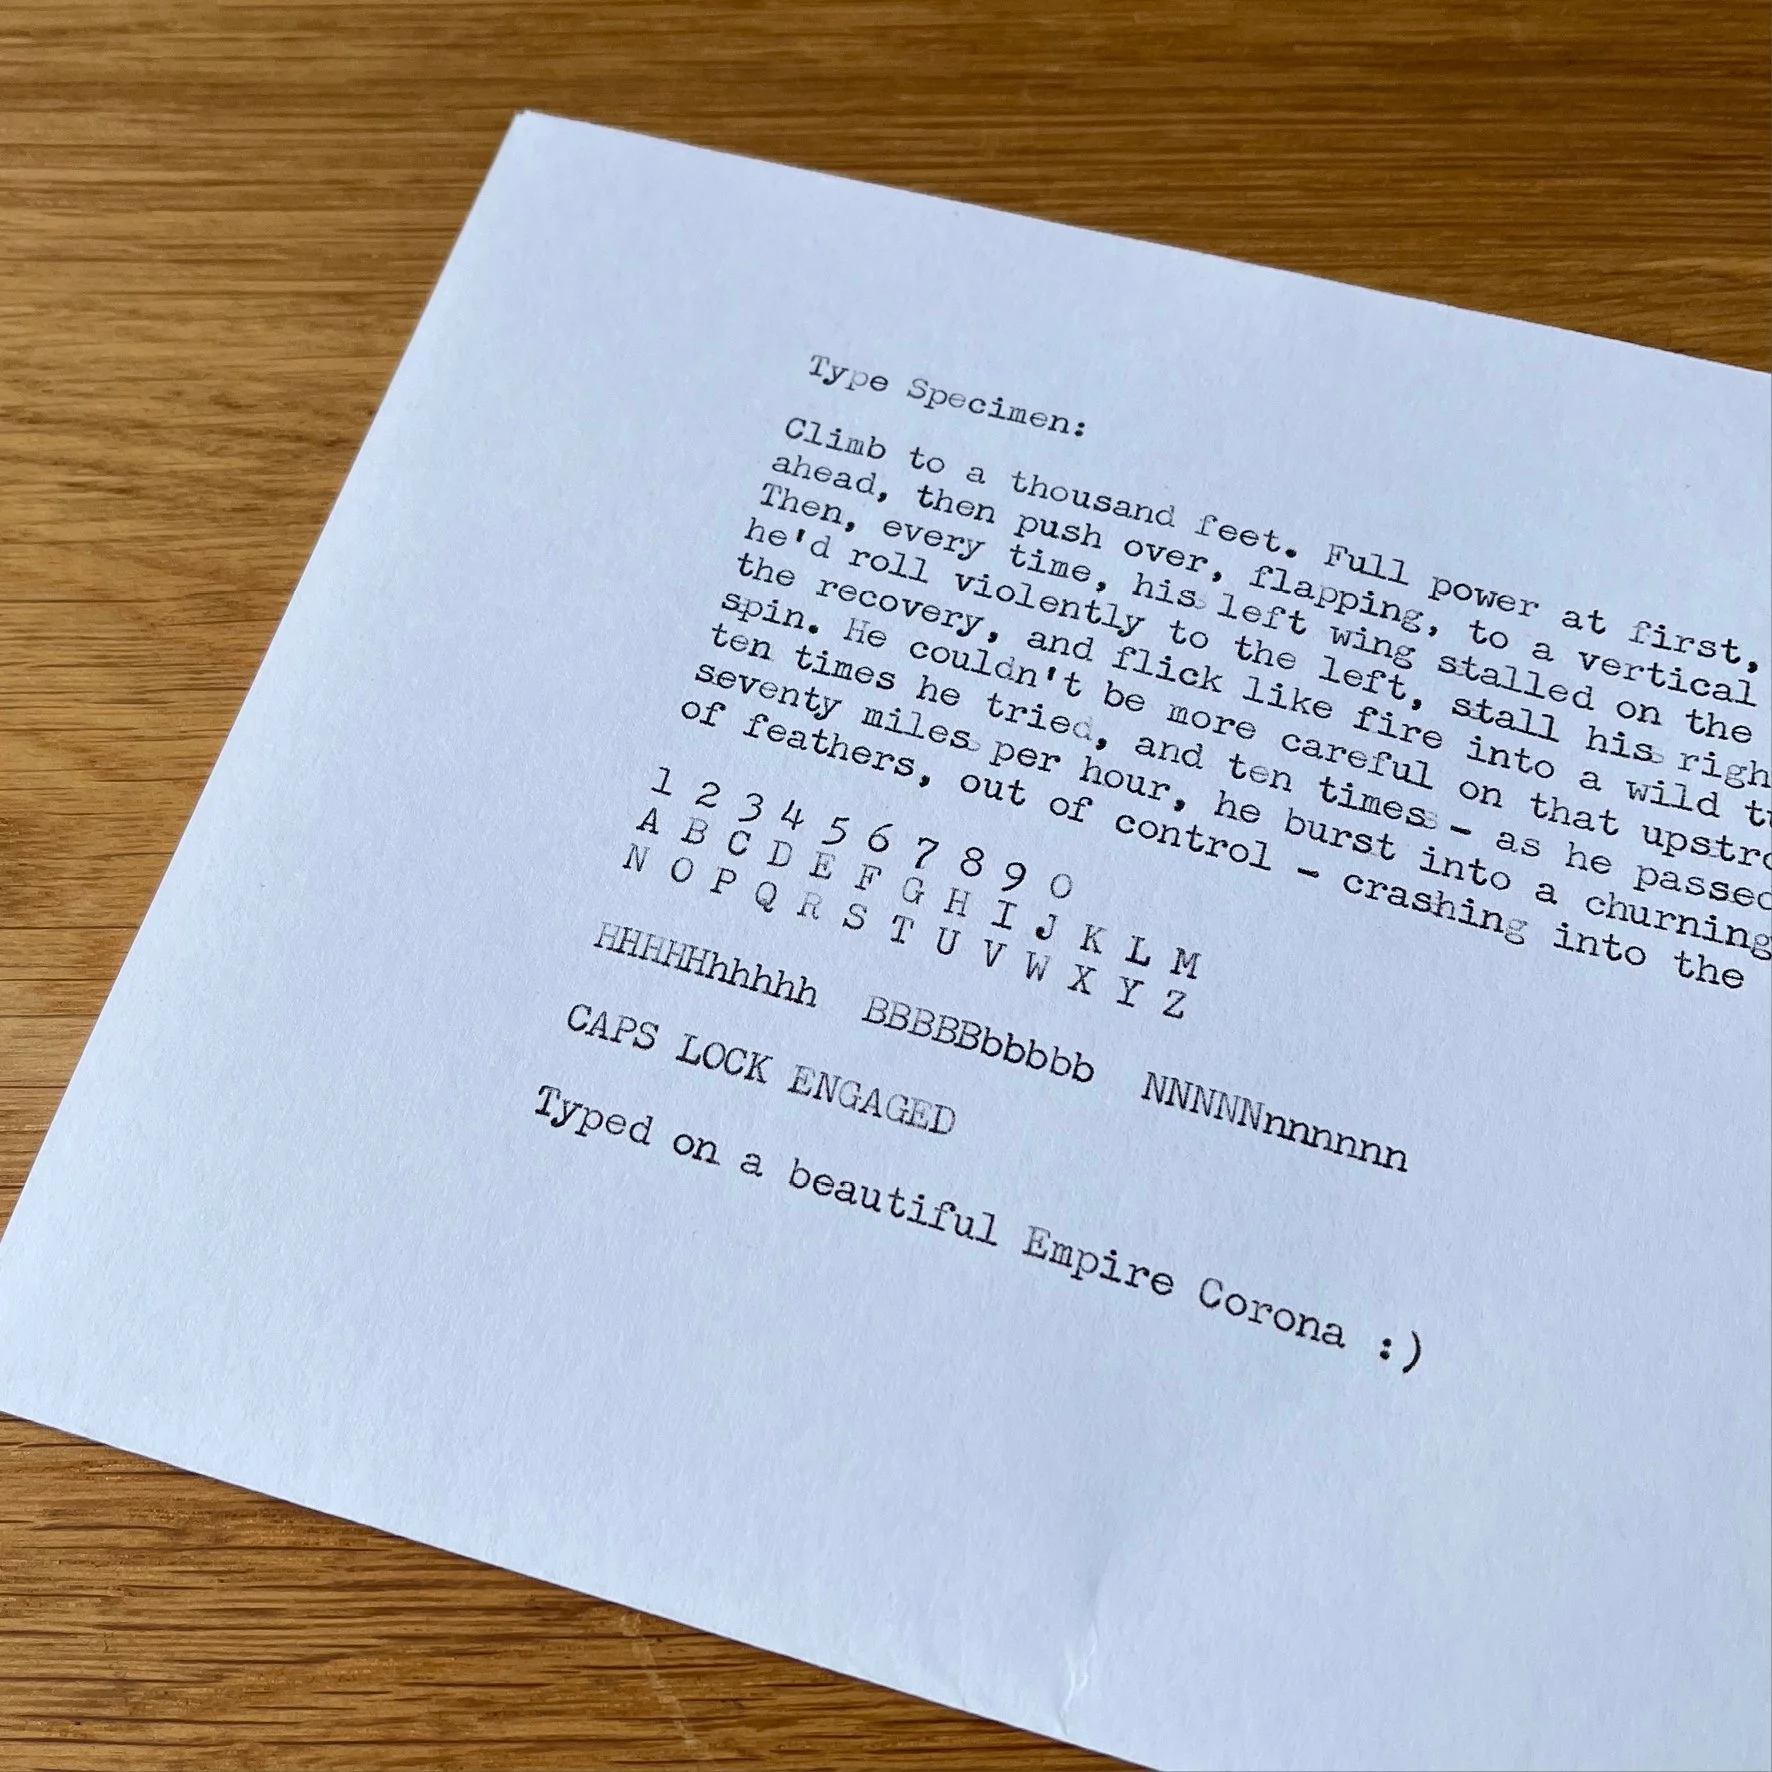 Type Specimen:
Climb to a thousand feet. Full power at first,
ahead, then push over, flapping, to a vertical
Then, every time, his left wing stalled on the
he'd roll violently to the left, stall his righ
the recovery, and flick like fire into a wild
spin. He couldn't be more careful on that upstro
ten times he tried, and ten times - as he passed
seventy miles per hour, he burst into a churning
of feathers, out of control - crashing into the
1 2 3 4 5 6 7 8 9 0
A B C D E F G H I J K L M
N O P Q R S T U V W X Y Z
HHHHHhhhhh BBBBBbbbbb NNNNNnnnnnn
CAPS LOCK ENGAGED
Typed on a beautiful Empire Corona :)